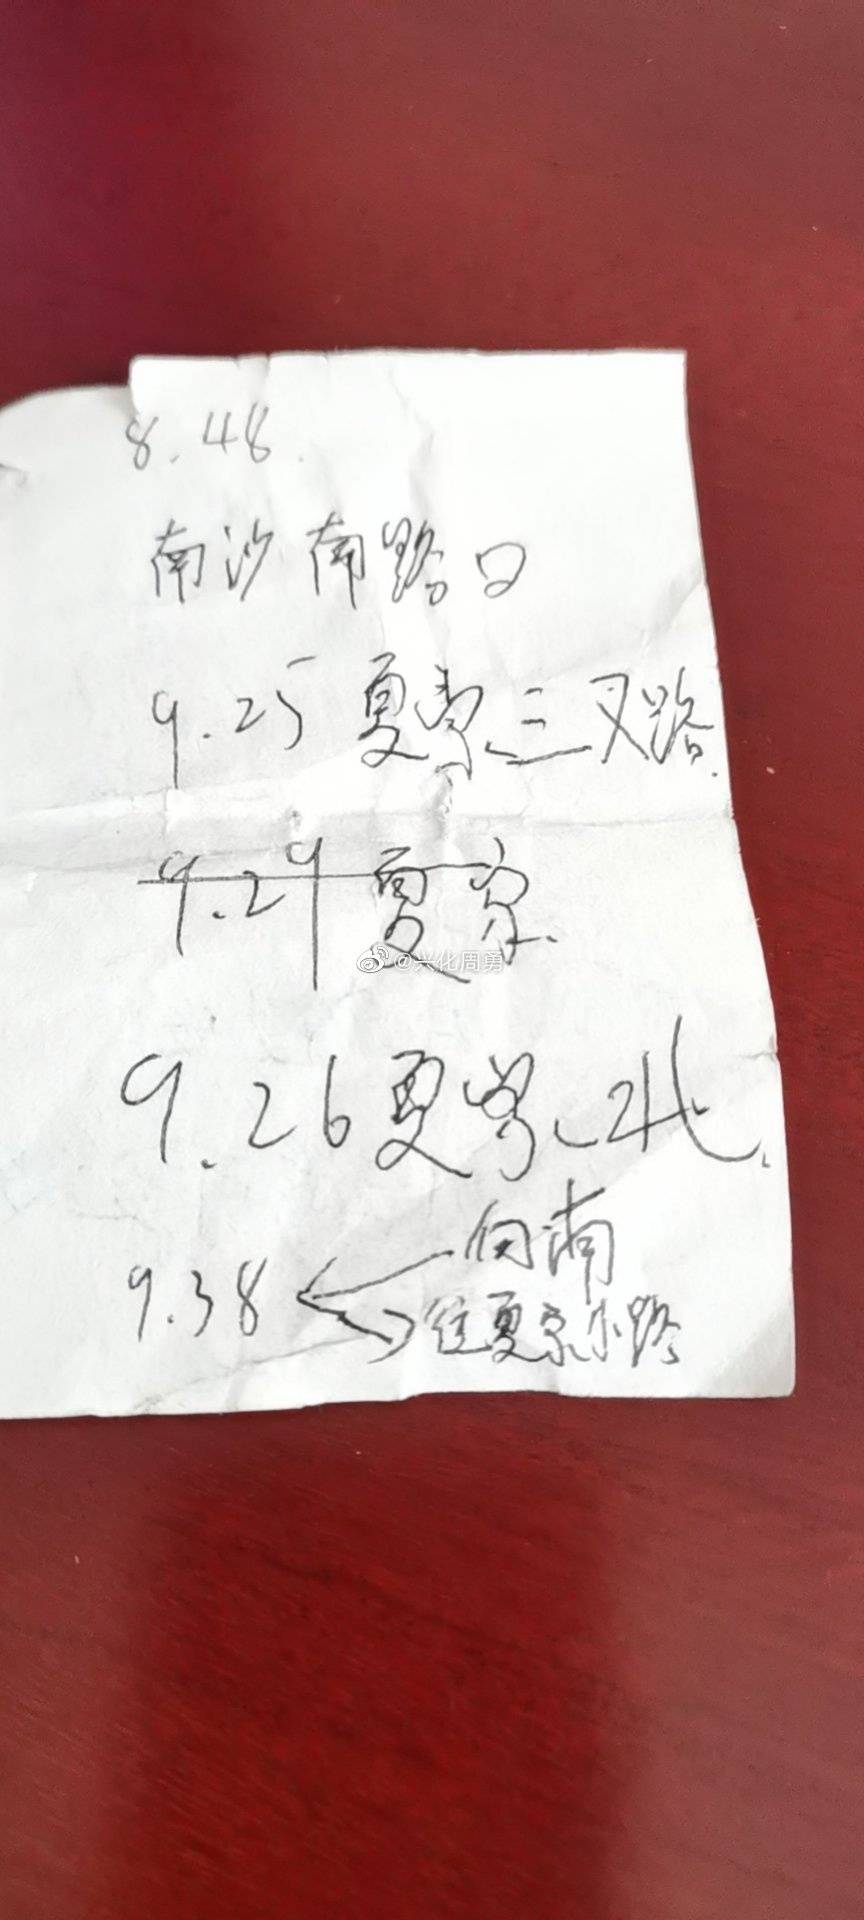 8.48.
南沙南路口
9.25 夏家三叉路.
9.29 夏家.
@兴化周勇
9.26 夏家北.
向南
9.38 往夏家小路